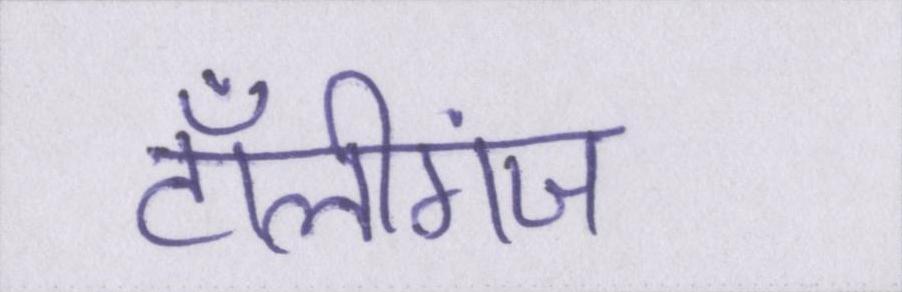 टाॅंलीगंज